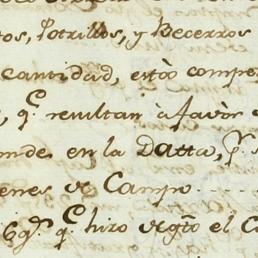 os, Potrillos, y Becerros
cantidad, estos compe
, q.e resultan à favòr
onde en la Datta, p.r s
enes de Campo
q.e hizo el C